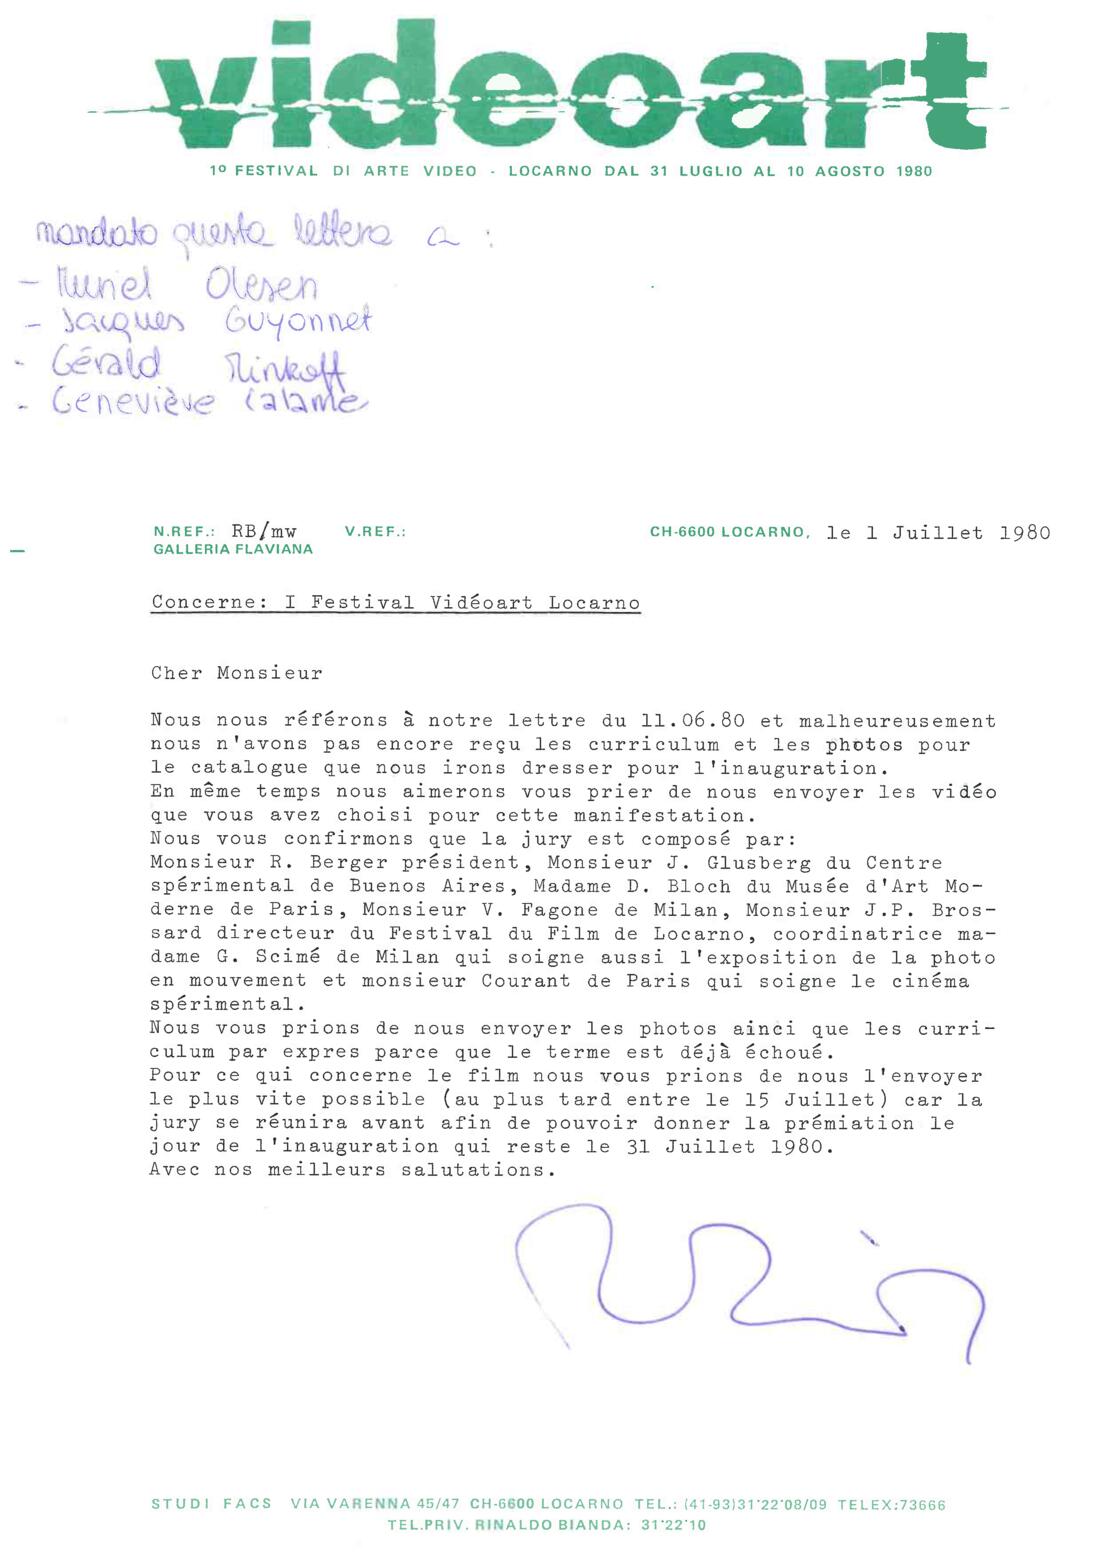 videoart
1º FESTIVAL DI ARTE VIDEO - LOCARNO DAL 31 LUGLIO AL 10 AGOSTO 1980
mandato questa lettera a :
- Muriel Olesen
- Jacques Guyonnet
- Gérald Minkoff
- Geneviève Calame
N.REF.: RB/mw V.REF.: CH-6600 LOCARNO, le 1 Juillet 1980
GALLERIA FLAVIANA
Concerne: I Festival Vidéoart Locarno
Cher Monsieur
Nous nous référons à notre lettre du 11.06.80 et malheureusement
nous n'avons pas encore reçu les curriculum et les photos pour
le catalogue que nous irons dresser pour l'inauguration.
En même temps nous aimerons vous prier de nous envoyer les vidéo
que vous avez choisi pour cette manifestation.
Nous vous confirmons que la jury est composé par:
Monsieur R. Berger président, Monsieur J. Glusberg du Centre
spérimental de Buenos Aires, Madame D. Bloch du Musée d'Art Mo-
derne de Paris, Monsieur V. Fagone de Milan, Monsieur J.P. Bros-
sard directeur du Festival du Film de Locarno, coordinatrice ma-
dame G. Scimé de Milan qui soigne aussi l'exposition de la photo
en mouvement et monsieur Courant de Paris qui soigne le cinéma
spérimental.
Nous vous prions de nous envoyer les photos ainci que les curri-
culum par expres parce que le terme est déjà échoué.
Pour ce qui concerne le film nous vous prions de nous l'envoyer
le plus vite possible (au plus tard entre le 15 Juillet) car la
jury se réunira avant afin de pouvoir donner la prémiation le
jour de l'inauguration qui reste le 31 Juillet 1980.
Avec nos meilleurs salutations.
STUDI FACS VIA VARENNA 45/47 CH-6600 LOCARNO TEL.: (41-93)31'22'08/09 TELEX:73666
TEL.PRIV. RINALDO BIANDA: 31'22'10